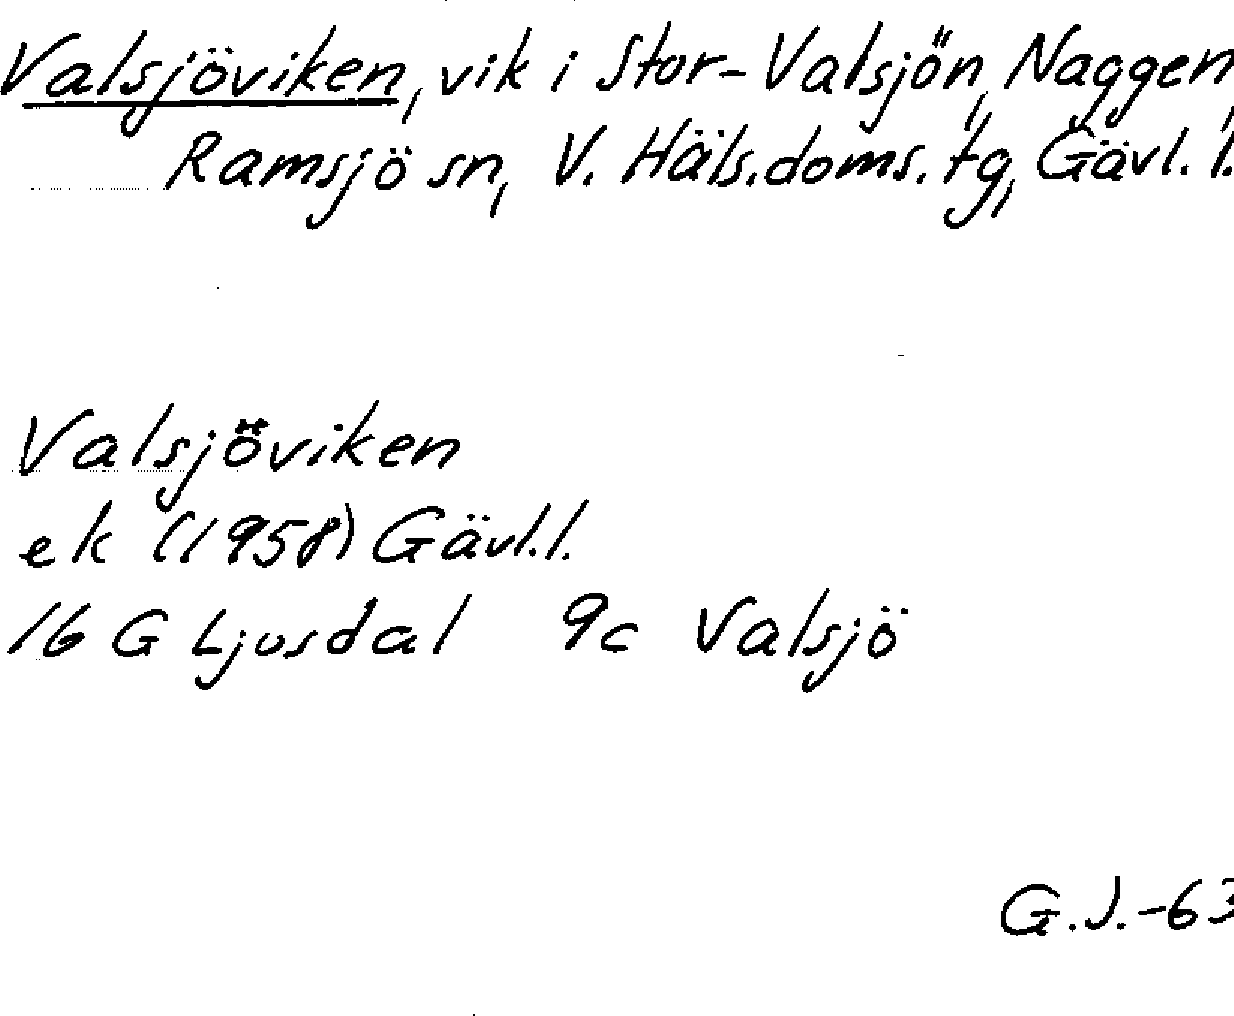 Valsjöviken, vik i Stor-Valsjön, Naggen,
Ramsjö sn, V. Häls. doms. tg, Gävl. l.
Valsjöviken
ek (1958) Gävl. l.
16 G Ljusdal 9c Valsjö
G.J.-63